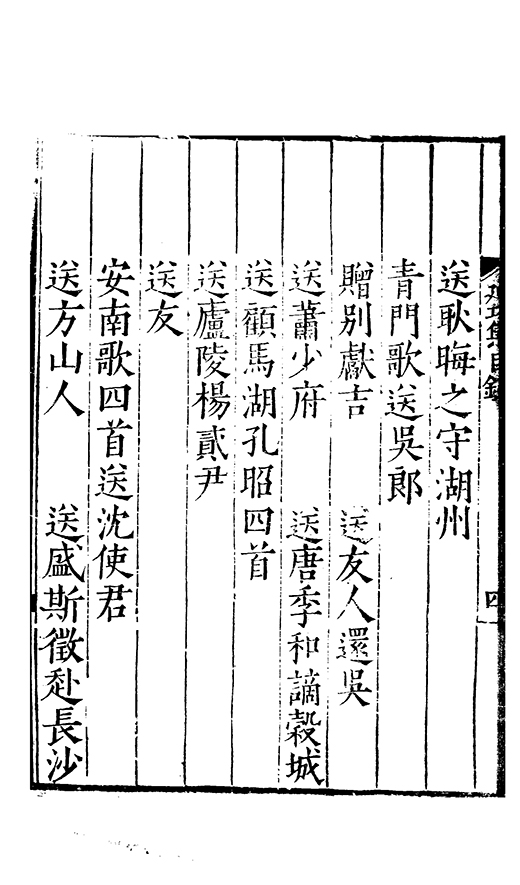 送耿晦之守湖州
青門歌送吳郎
贈別獻吉　送友人還吳
送蕭少府　送唐季和謫穀城
送顧馬湖孔昭四首
送廬陵楊貳尹
送友
安南歌四首送沈使君
送方山人　送盛斯徵赴長沙
四